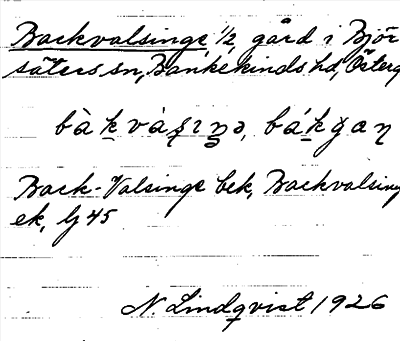 Backvalsinge, 1/2, gård i Björ
säters sn, Bankekinds hd, Österg
Back-Valsinge bek, Backvalsing
ek, lj 45
N. Lindqvist 1926